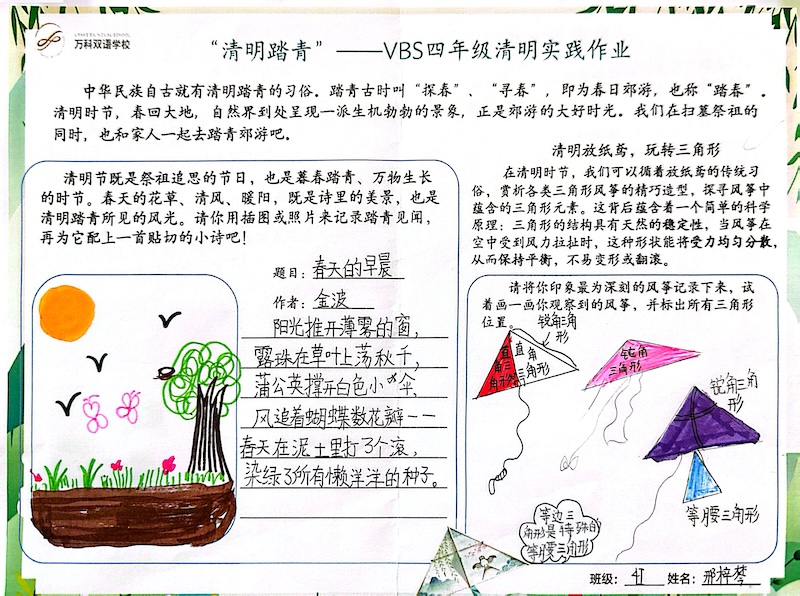 VANKE BILINGUAL SCHOOL
万科双语学校
“清明踏青”——VBS四年级清明实践作业
中华民族自古就有清明踏青的习俗。踏青古时叫“探春”、“寻春”，即为春日郊游，也称“踏春”。
清明时节，春回大地，自然界到处呈现一派生机勃勃的景象，正是郊游的大好时光。我们在扫墓祭祖的
同时，也和家人一起去踏青郊游吧。
清明节既是祭祖追思的节日，也是暮春踏青、万物生长
的时节。春天的花草、清风、暖阳，既是诗里的美景，也是
清明踏青所见的风光。请你用插图或照片来记录踏青见闻，
再为它配上一首贴切的小诗吧！
题目：春天的早晨
作者：金波
阳光推开薄雾的窗，
露珠在草叶上荡秋千，
蒲公英撑开白色小伞，
风追着蝴蝶数花瓣——
春天在泥土里打了个滚，
染绿了所有懒洋洋的种子。
清明放纸鸢，玩转三角形
在清明时节，我们可以循着放纸鸢的传统习
俗，赏析各类三角形风筝的精巧造型，探寻风筝中
蕴含的三角形元素。这背后蕴含着一个简单的科学
原理：三角形的结构具有天然的稳定性，当风筝在
空中受到风力拉扯时，这种形状能将受力均匀分散，
从而保持平衡，不易变形或翻滚。
请将你印象最为深刻的风筝记录下来，试
着画一画你观察到的风筝，并标出所有三角形
位置。
锐角三角
形
直角三角形
直角三角形
钝角
三角形
锐角三角
形
等腰三角形
等边三
角形是特殊的
等腰三角形
班级：4J 姓名：邢梓梦